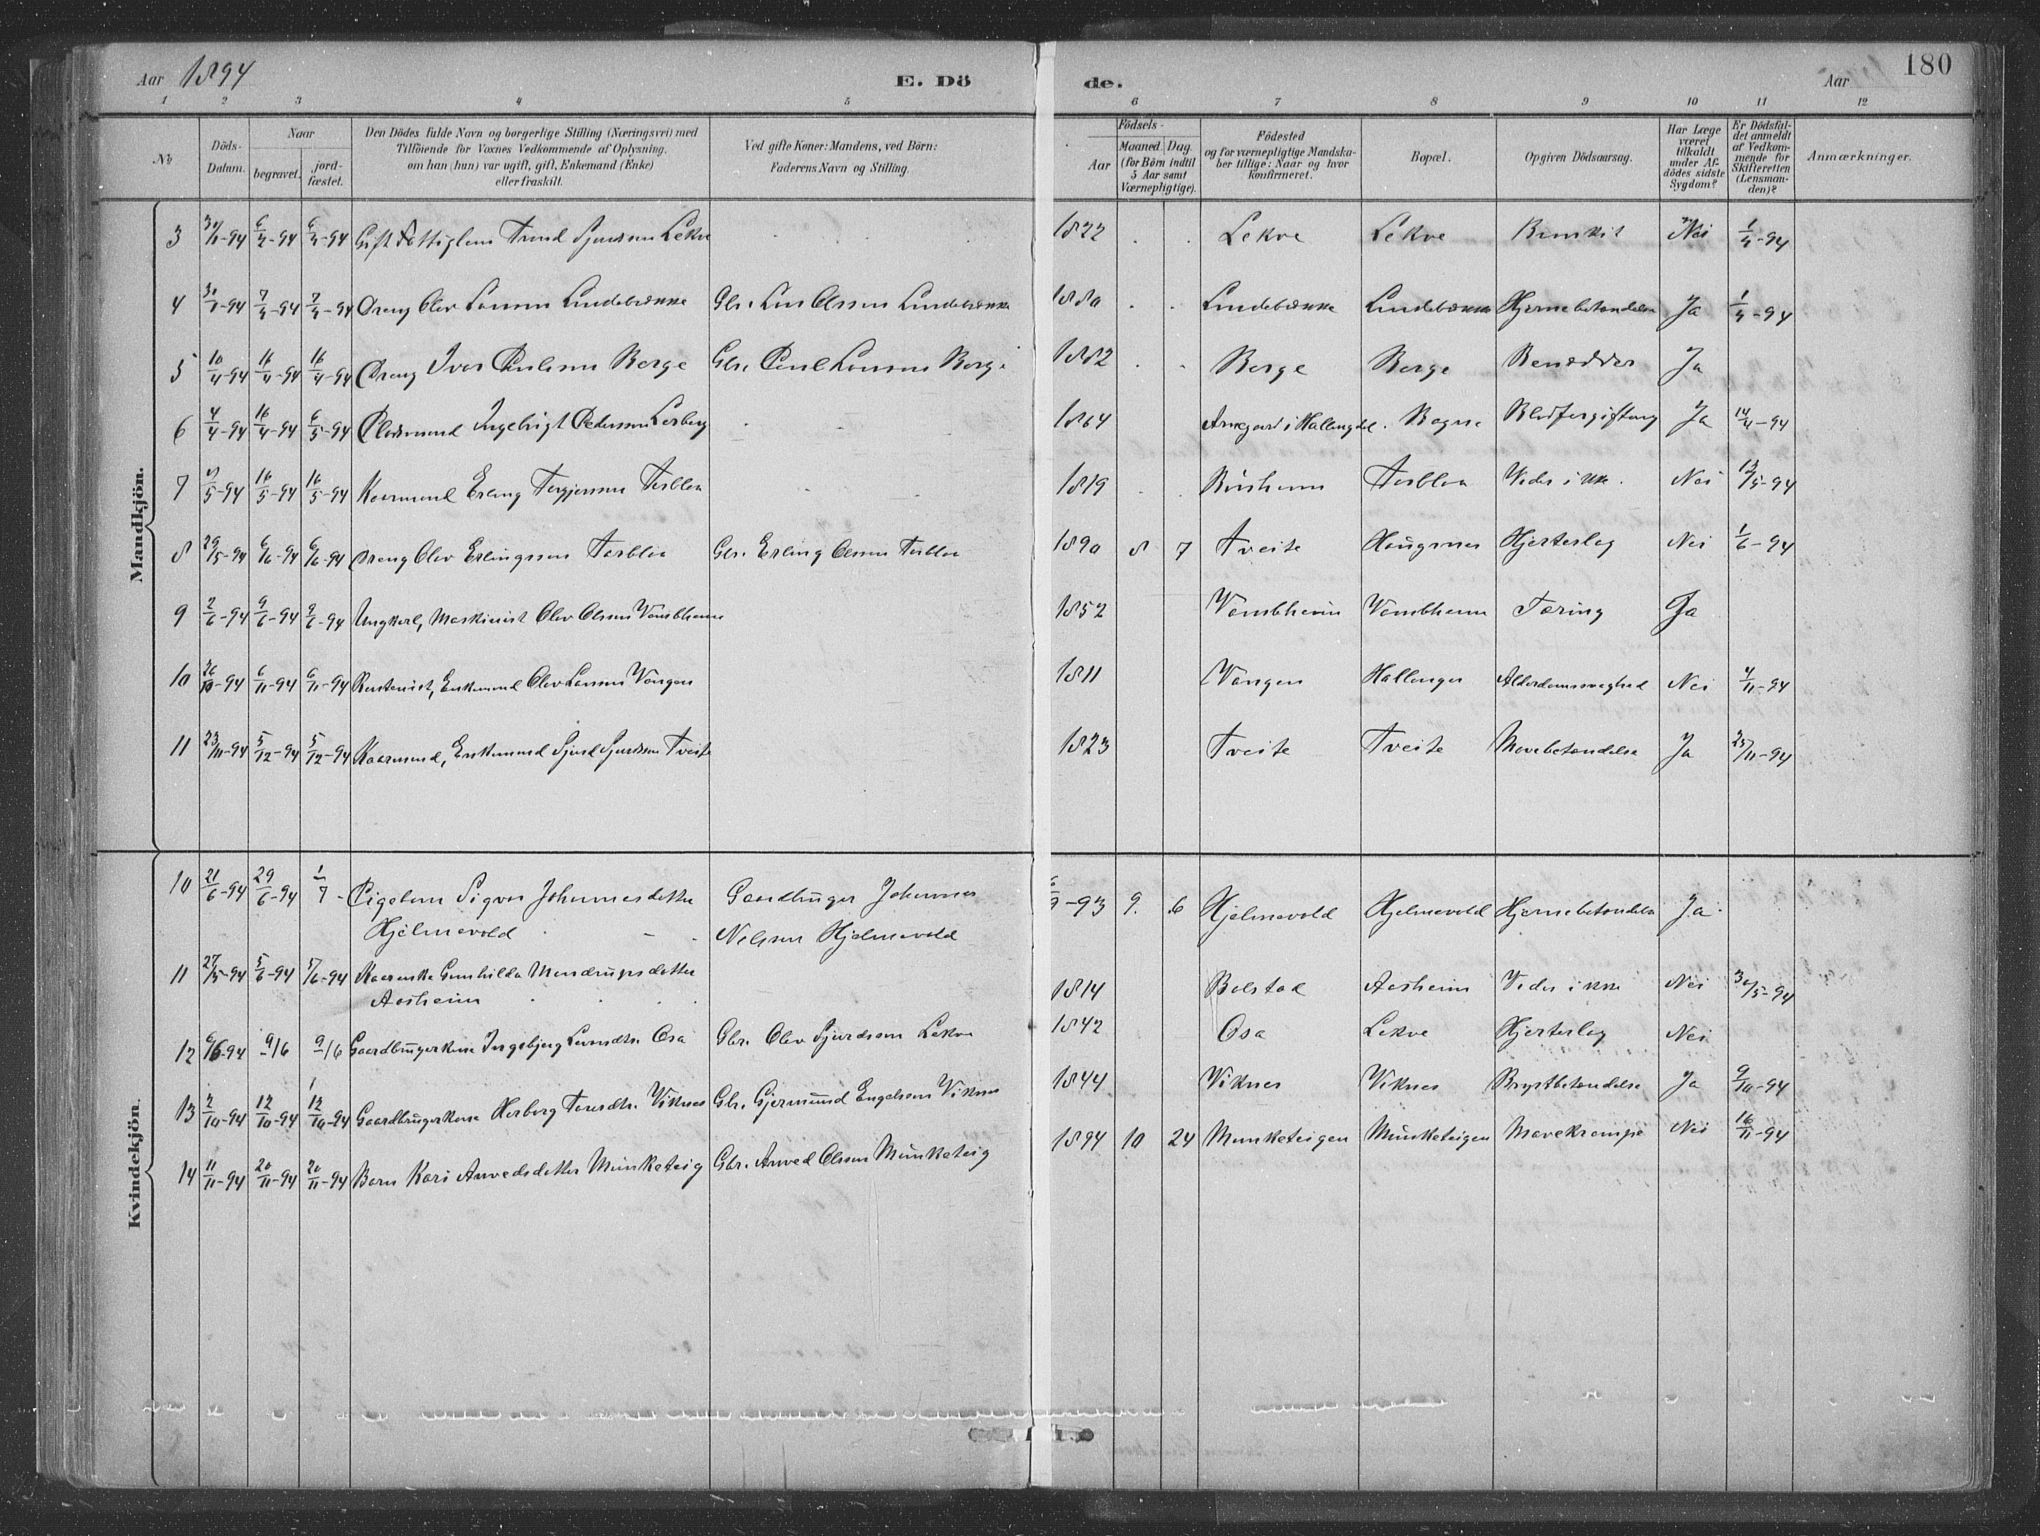 Aar 1894
E. Dö
de.
Aar
180
1 2 3 4 5 6 7 8 9 10 11 12
No
Döds-Datum.
Naar
begravet.
jord-fæstet.
Den Dödes fulde Navn og borgerlige Stilling (Næringsvei) med
Tilföiende for Voxnes Vedkommende af Oplysning,
om han (hun) var ugift, gift, Enkemand (Enke)
eller fraskilt.
Ved gifte Koner: Mandens, ved Börn:
Faderens Navn og Stilling.
Födsels-
Aar
Maaned. Dag.
(for Börn indtil
5 Aar samt
Værnepligtige).
Födested
og for værnepligtige Mandska-
ber tillige: Naar og hvor
konfirmeret.
Bopæl.
Opgiven Dödsaarsag.
Har Læge
været
tilkaldt
under Af-
dödes sidste
Sygdom?
Er Dödsfal-
det anmeldt
af Vedkom-
mende for
Skifteretten
(Lensman-
den)?
Anmærkninger.
Mandkjön.
3 6/4-94 6/4-94 Gift Lekve 1822 Lekve Lekve Nei 1/4-94
4 7/4-94 7/4-94 Dreng Olav Larsen Lindebrekke Gbr. Lars Olssen Lindebrekke 1880 Lindebrekke Lindebrekke Hjernebetændelse Ja 1/4-94
5 10/4-94 16/4-94 16/4-94 Dreng Ivar Paulsen Berge Gbr. Paul Larsen Berge 1882 Berge Berge Benædder Ja
6 4/4-94 16/4-94 6/5-94 Ingebrigt Pedersen 1864 i Hallingdal Blodforgiftning Ja 14/4-94
7 16/5-94 16/5-94 Kaarmand Erling Torbloa 1819 Torbloa Vides ikke. Nei 13/5-94
8 29/5-94 6/6-94 6/6-94 Dreng Olav Erlingssen Torbloa Gbr. Erling Olssen Torbloa 1890 8 7 Tveite Hougsnes Hjerteslag Nei 1/6-94
9 2/6-94 9/6-94 9/6-94 Ungkarl, Maskinist Olav Olssen Vambheim 1852 Vambheim Vambheim Tæring Ja
10 26/10-94 6/11-94 6/11-94 Enkemand Olav Larsen Vangen 1811 Vangen Hallanger Alderdomssvaghed Nei 4/11-94
11 23/11-94 5/12-94 5/12-94 Kaarmand, Enkemand Sjurd Sjurdssen Tveite 1823 Tveite Tveite Mavebetændelse Ja 25/11-94
Kvindekjön.
10 21/6-94 29/6-94 1/7- Pigebarn Sigvor Johannesdatter Gaardbruger Johannes 6/9-93 9. 6 Hjelmevold Hjelmevold Hjernebetændelse Ja
Hjelmevold Nilssen Hjelmevold
11 27/5-94 5/6-94 5/6-94 Kaarenke Gunhilda Mandrupsdatter 1814 Bolstad Aasheim Vides ikke Nei 30/5-94
Aasheim
12 9/6 9/6 Gaardbrugerkone Ingebjørg Osa Gbr. Olav Sjurdssen Lekve 1842 Osa Lekve Hjerteslag Nei
13 2/10-94 12/10-94 12/10-94 Gaardbrugerkone Herborg Viknes Gbr. Gjermund Engelssen Viknes 1844 Viknes Viknes Brystbetændelse Ja 9/10-94
14 11/11-94 20/11-94 20/11-94 Barn Kari Arvedsdatter Munketeig Gbr. Arved Olssen Munketeig 1894 10 24 Munketeigen Munketeigen Mavekrampe Nei 16/11-94